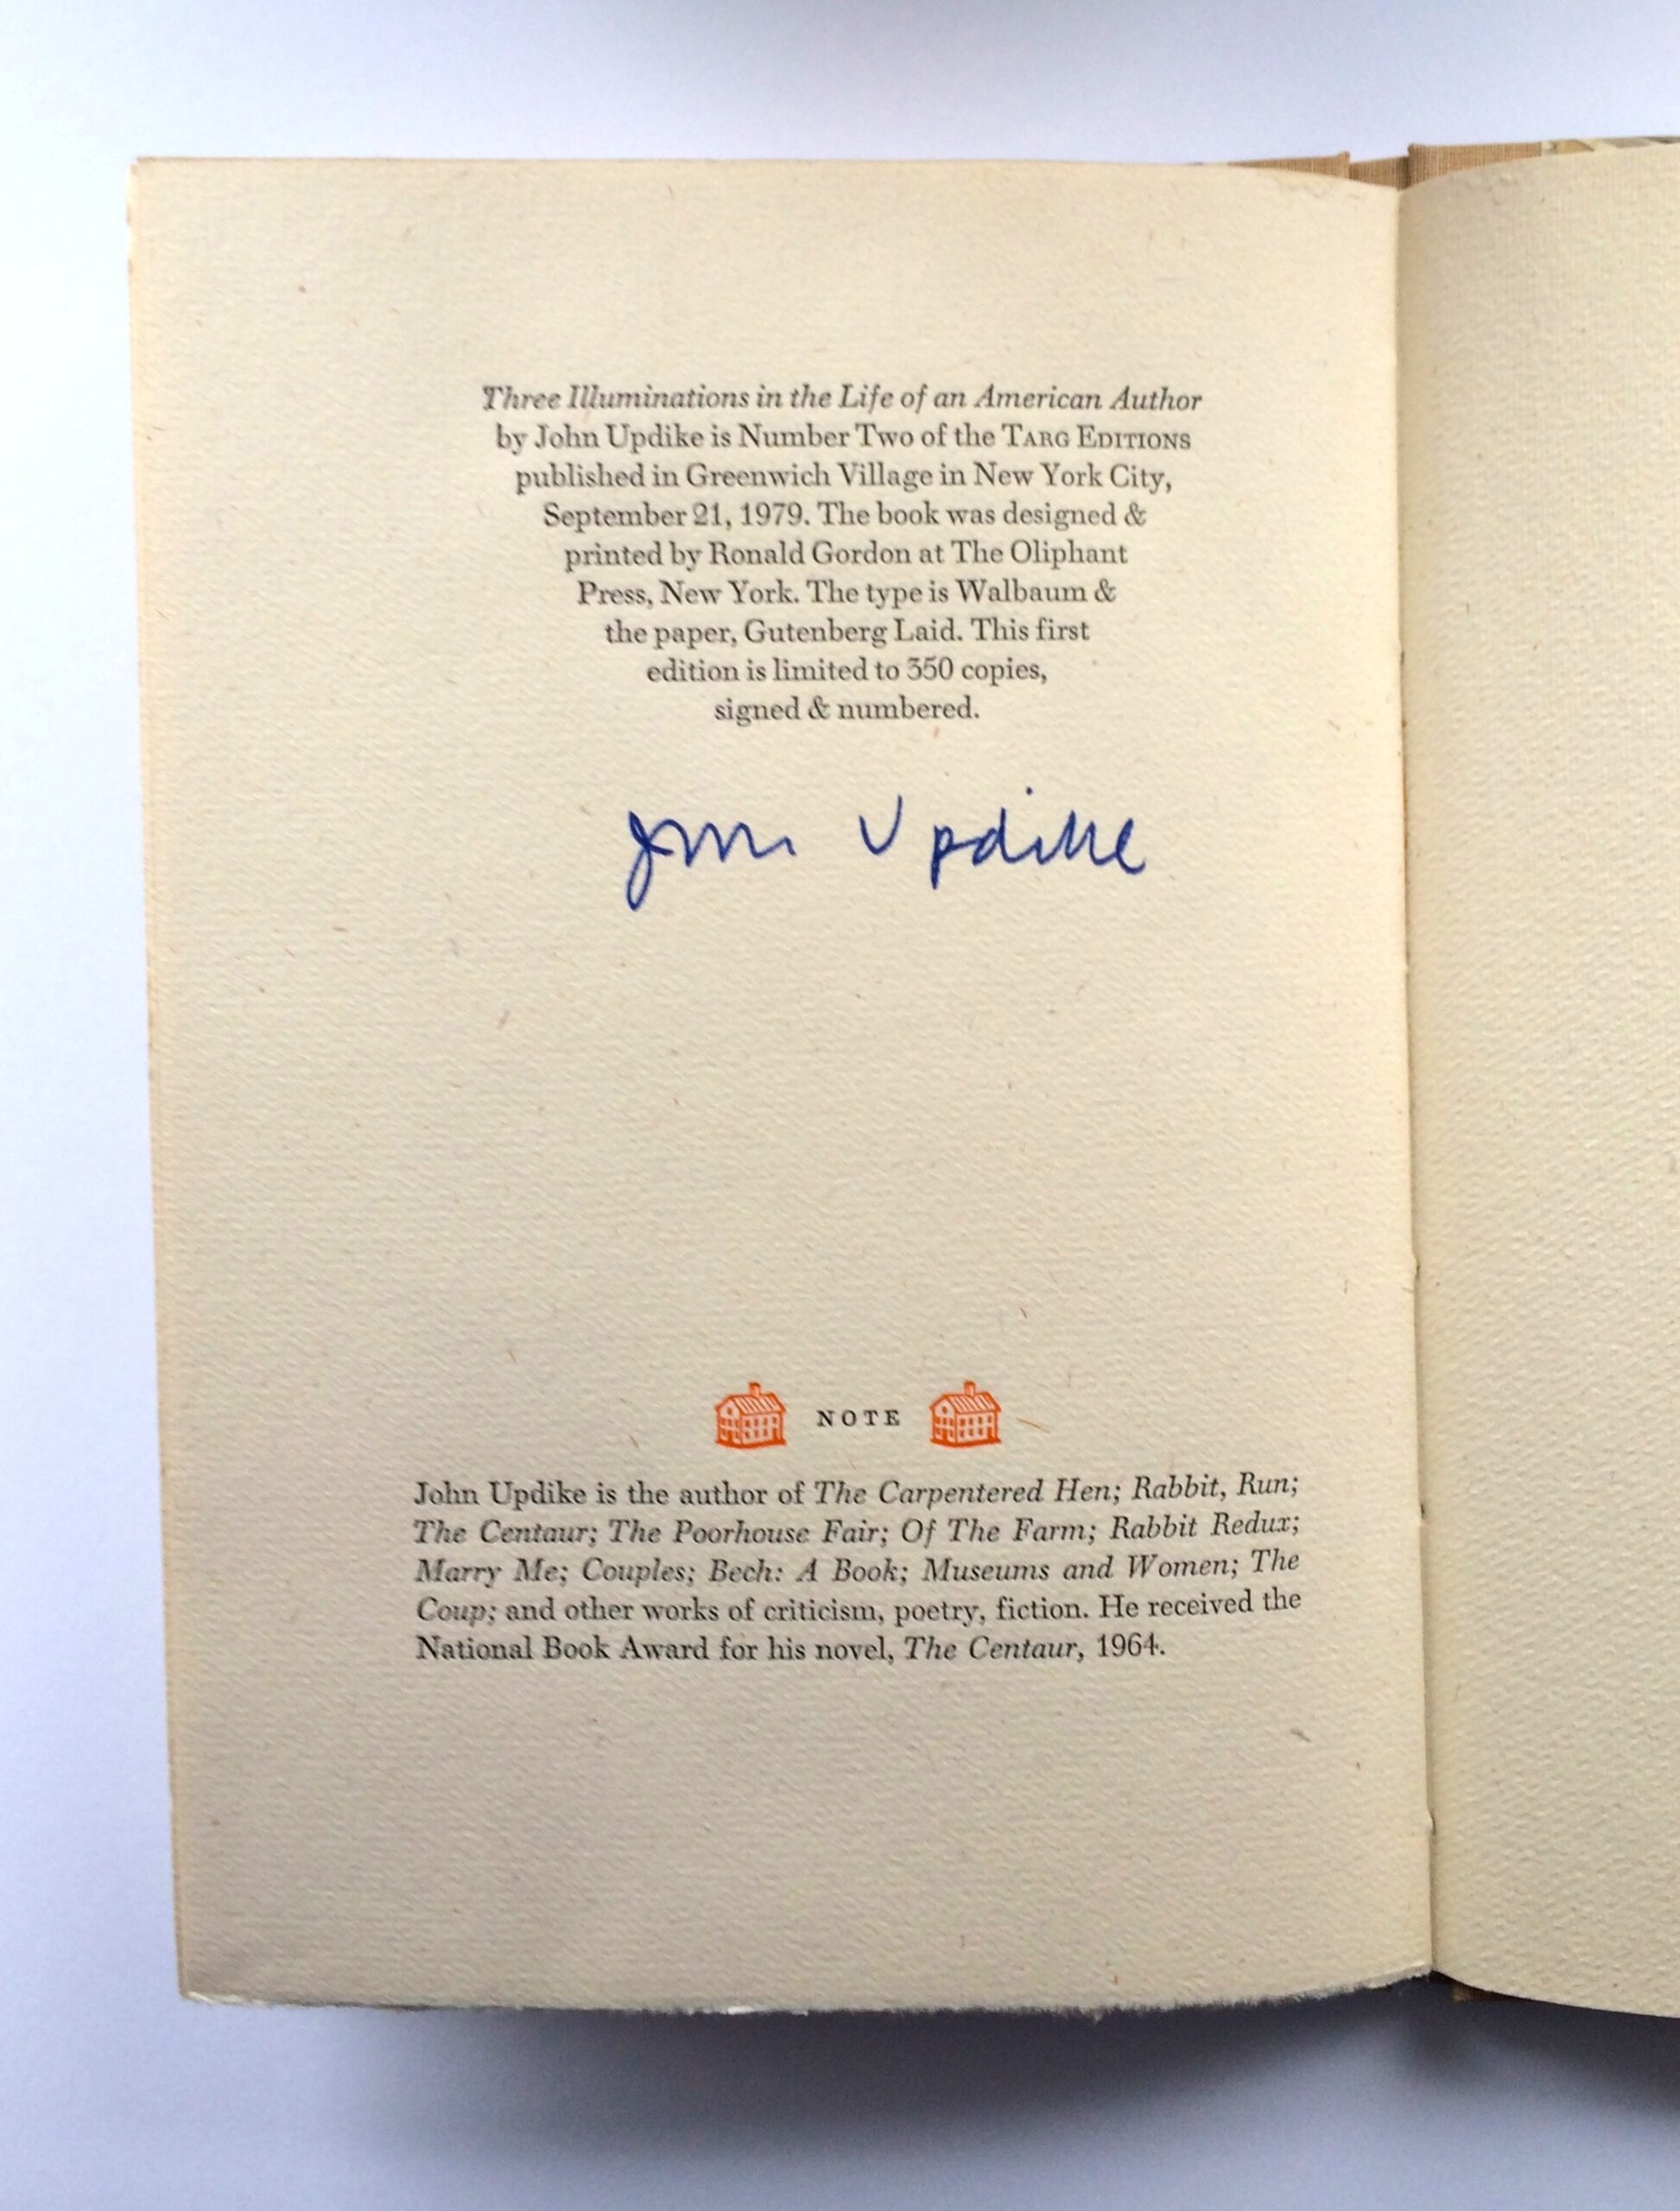 Three Illuminations in the Life of an American Author
by John Updike is Number Two of the TARG EDITIONS
published in Greenwich Village in New York City,
September 21, 1979. The book was designed &
printed by Ronald Gordon at The Oliphant
Press, New York. The type is Walbaum &
the paper, Gutenberg Laid. This first
edition is limited to 350 copies,
signed & numbered.
John Updike
NOTE
John Updike is the author of The Carpentered Hen; Rabbit, Run;
The Centaur; The Poorhouse Fair; Of The Farm; Rabbit Redux;
Marry Me; Couples; Bech: A Book; Museums and Women; The
Coup; and other works of criticism, poetry, fiction. He received the
National Book Award for his novel, The Centaur, 1964.